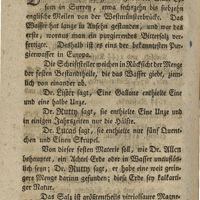 sen in Surrey, etwa sechszehn bis siebzehn
englische Meilen von der Westmünsterbrücke. Das
Wasser hat lange in Ansehn gestanden, und war das
erste, woraus man ein purgierendes Bittersalz ver-
fertigte. Deshalb ist es eins der bekanntesten Pur-
gierwasser in Europa.
Die Schriftsteller weichen in Rücksicht der Menge
der festen Bestandtheile, die das Wasser giebt, ziem-
lich von einander ab.
Dr. Lister sagt, Eine Gallone enthielte Eine
und eine halbe Unze.
Dr. Rutty sagt, sie enthielte Eine Unze und
in einigen Jahrszeiten nur die Hälfte.
Dr. Lucas sagt, sie enthielte nur fünf Quent-
chen und Einen Skrupel.
Von dieser festen Materie soll, wie Dr. Allen
behauptet, ein Achtel Erde oder in Wasser unauflös-
lich seyn; Dr. Rutty sagt, er habe eine weit gerin-
gere Menge darinn gefunden; diese Erde sey kalkarti-
ger Natur.
Das Salz ist größtentheils vitriolisirte Magne-